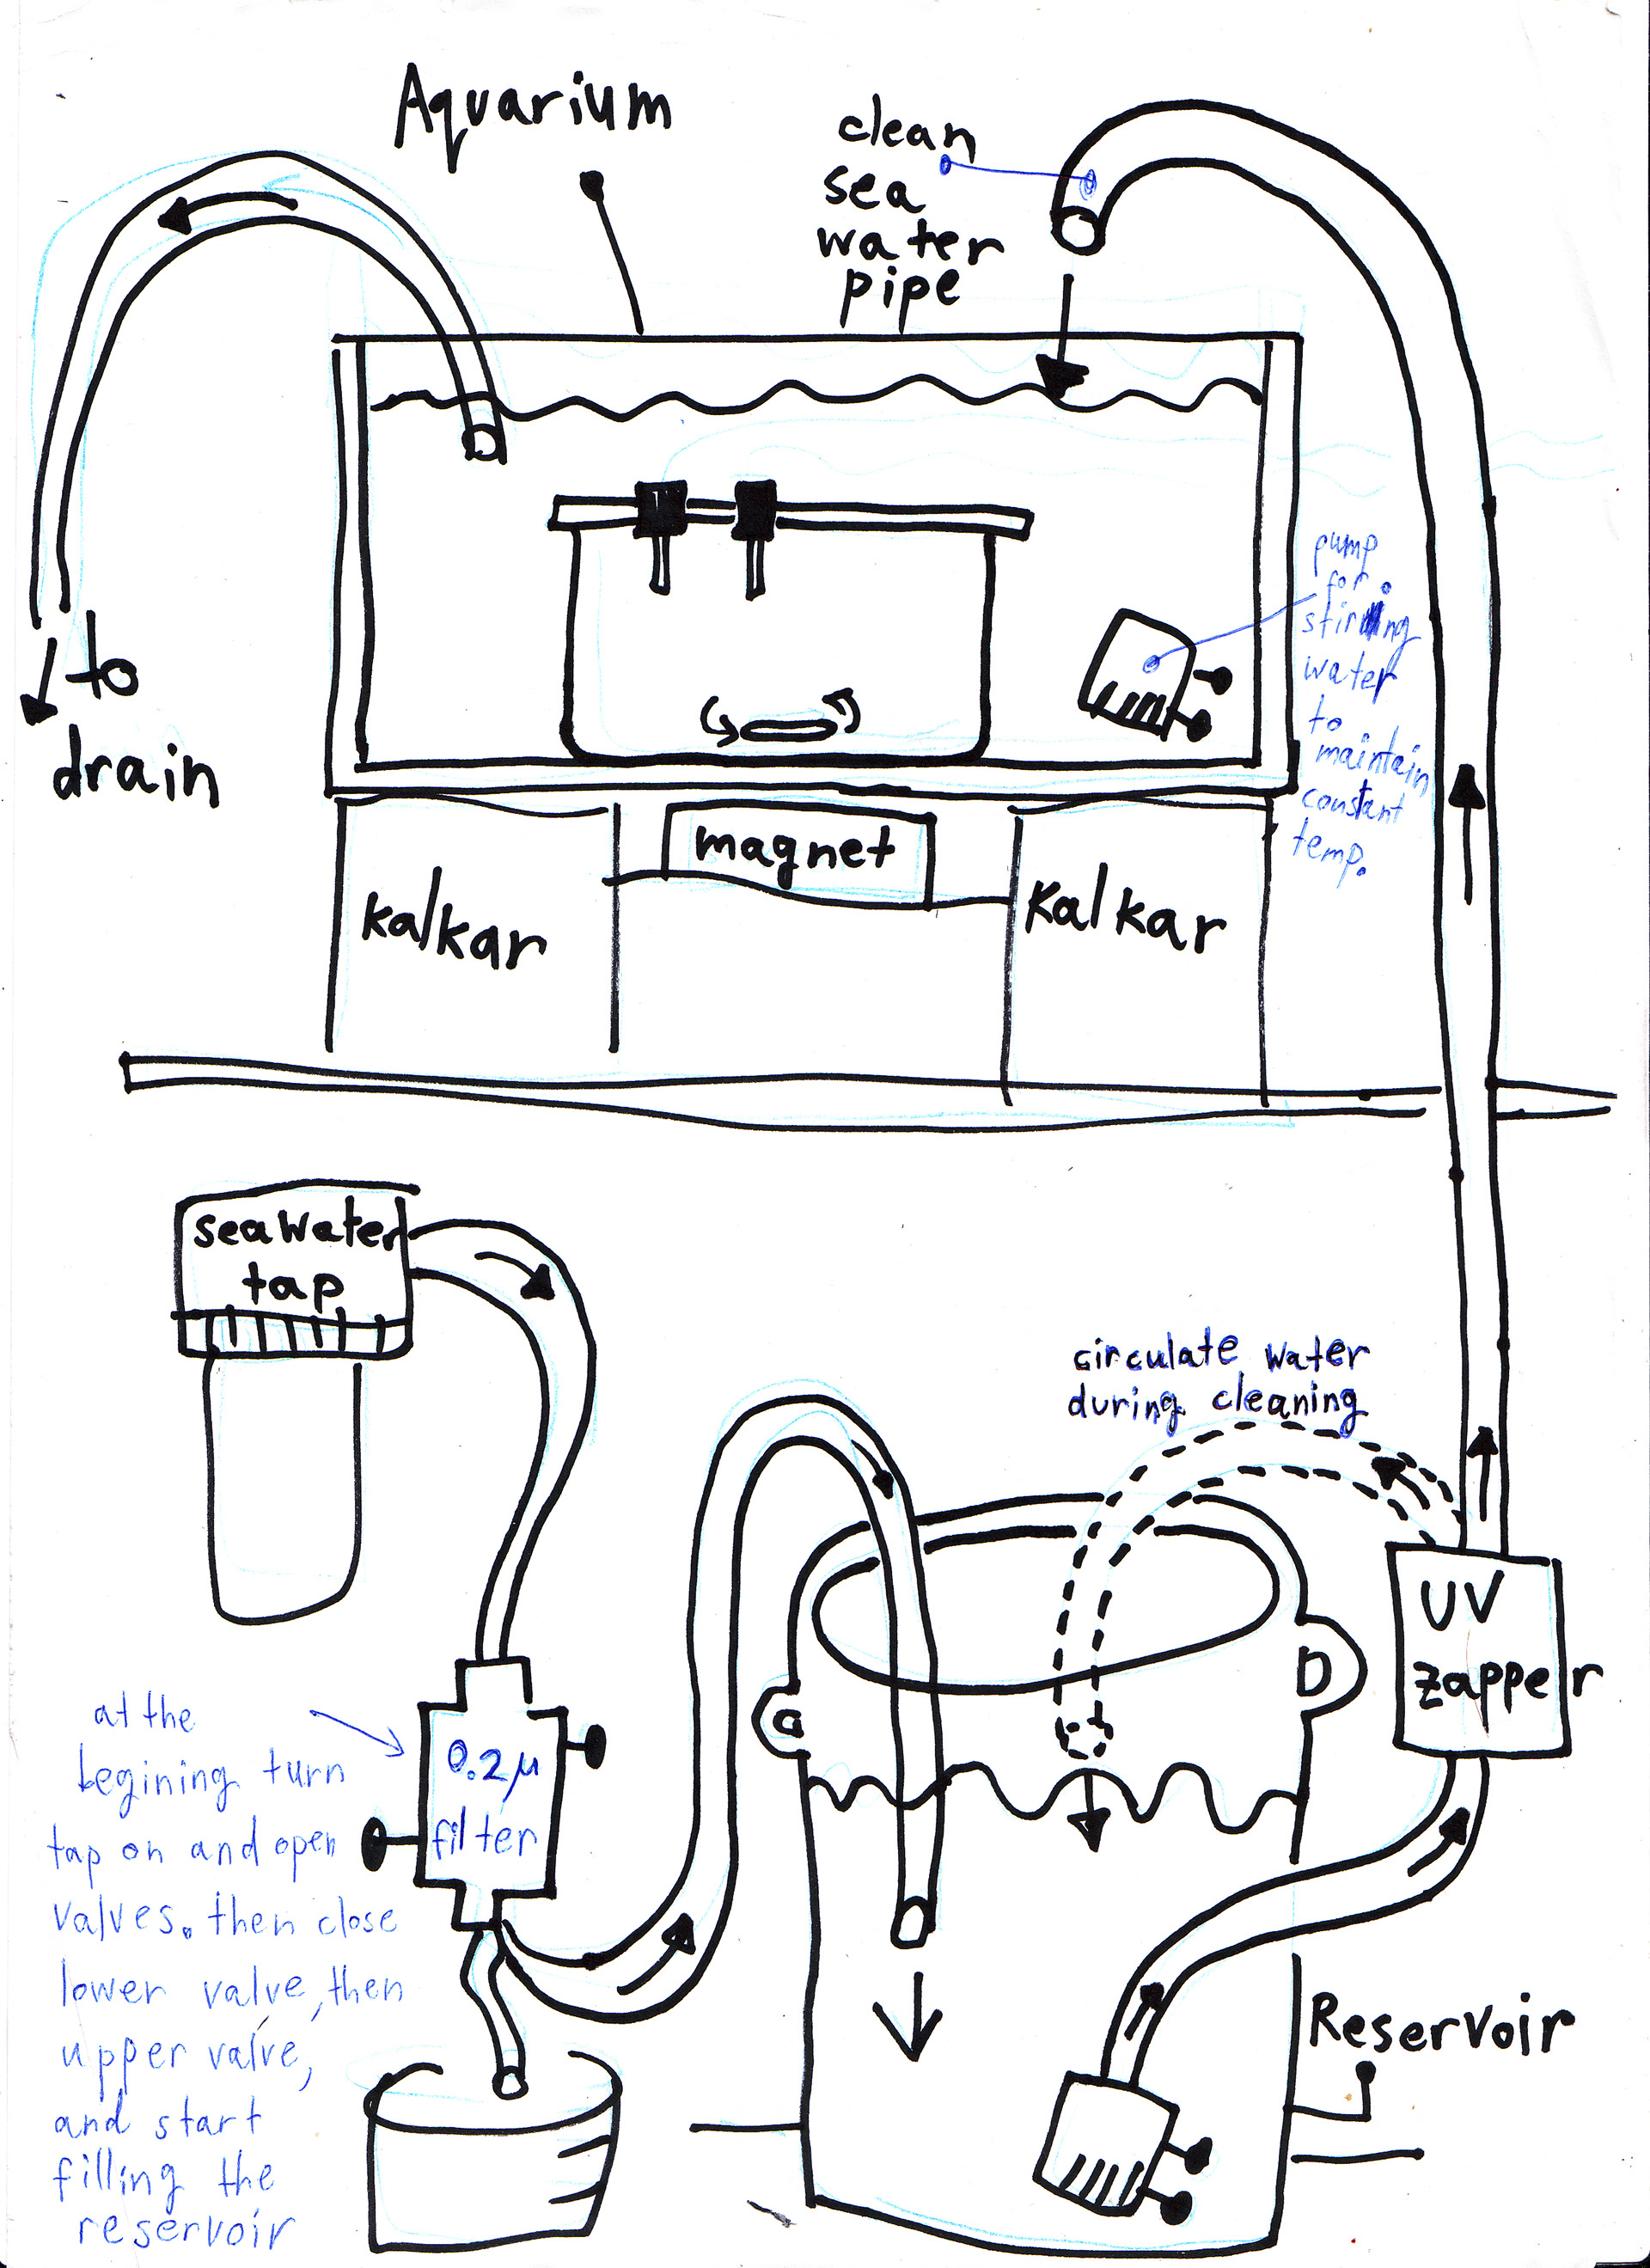 Aquarium
clean
sea
water
pipe
to
drain
pump
for
stirring
water
to
maintain
constant
temp.
magnet
kalkar
Kalkar
seawater
tap
circulate water
during cleaning
UV
zapper
at the
begining turn
tap on and open
valves. then close
lower valve, then
upper valve,
and start
filling the
reservoir
0.2µ
filter
Reservoir